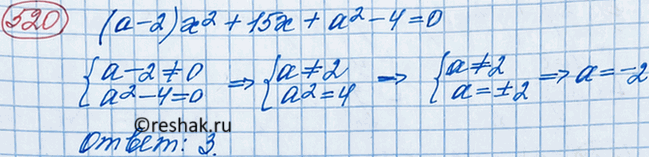 520 (a-2)x² + 15x + a² - 4 = 0
{a-2≠0 a²-4=0 => {a≠2 a²=4 -> {a≠2 a=±2 => a=-2
©reshak.ru
Ответ: 3.